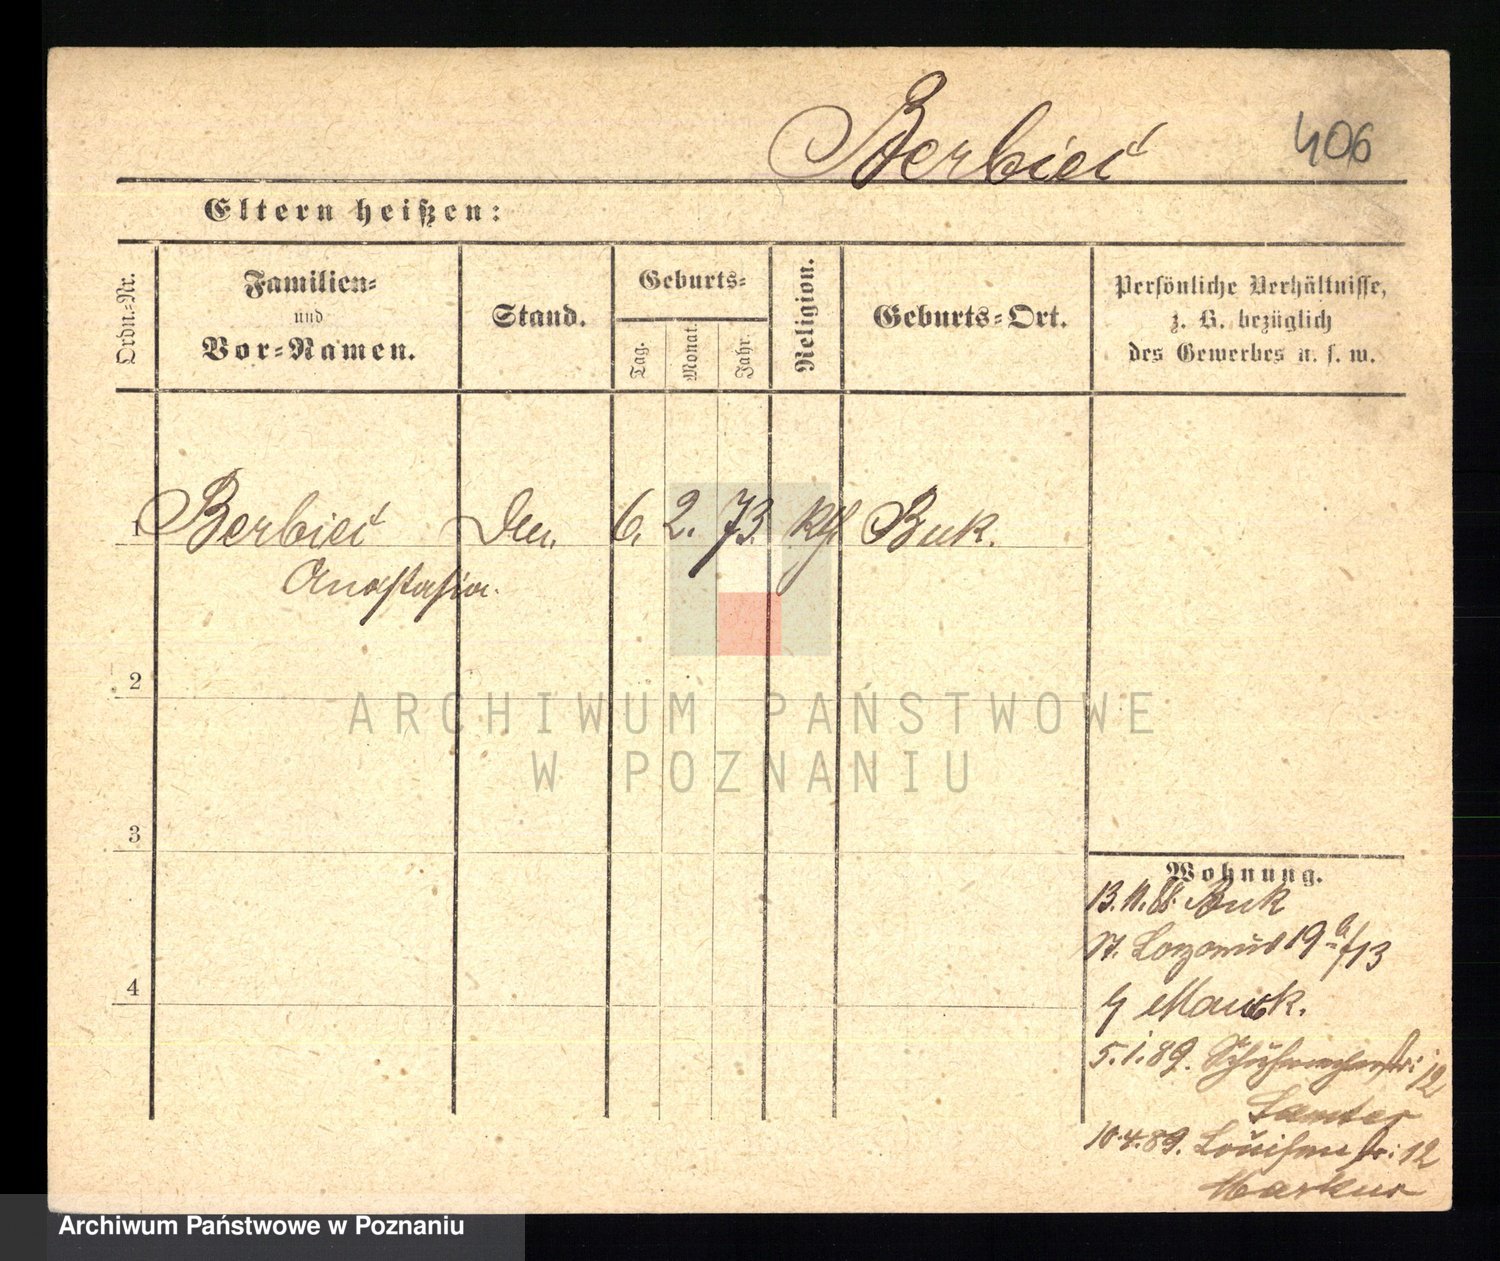 Berbieć 406
Eltern heißen:
Ordn.-Nr.
Familien-
und
Vor-Namen.
Stand.
Geburts-
Tag.
Monat.
Jahr.
Religion.
Geburts-Ort.
Persönliche Verhältnisse,
z. B. bezüglich
des Gewerbes u. s. w.
1 Berbieć 6. 2. 73. kth Buk.
Anastasia.
2
ARCHIWUM PAŃSTWOWE
W POZNANIU
3
Wohnung.
13.11.88. Buk
St. Lazarus 19
4
5.1.89. Schuhmacherstr: 12
Samter
10.4.89. Louisenstr: 12
Markus
Archiwum Państwowe w Poznaniu